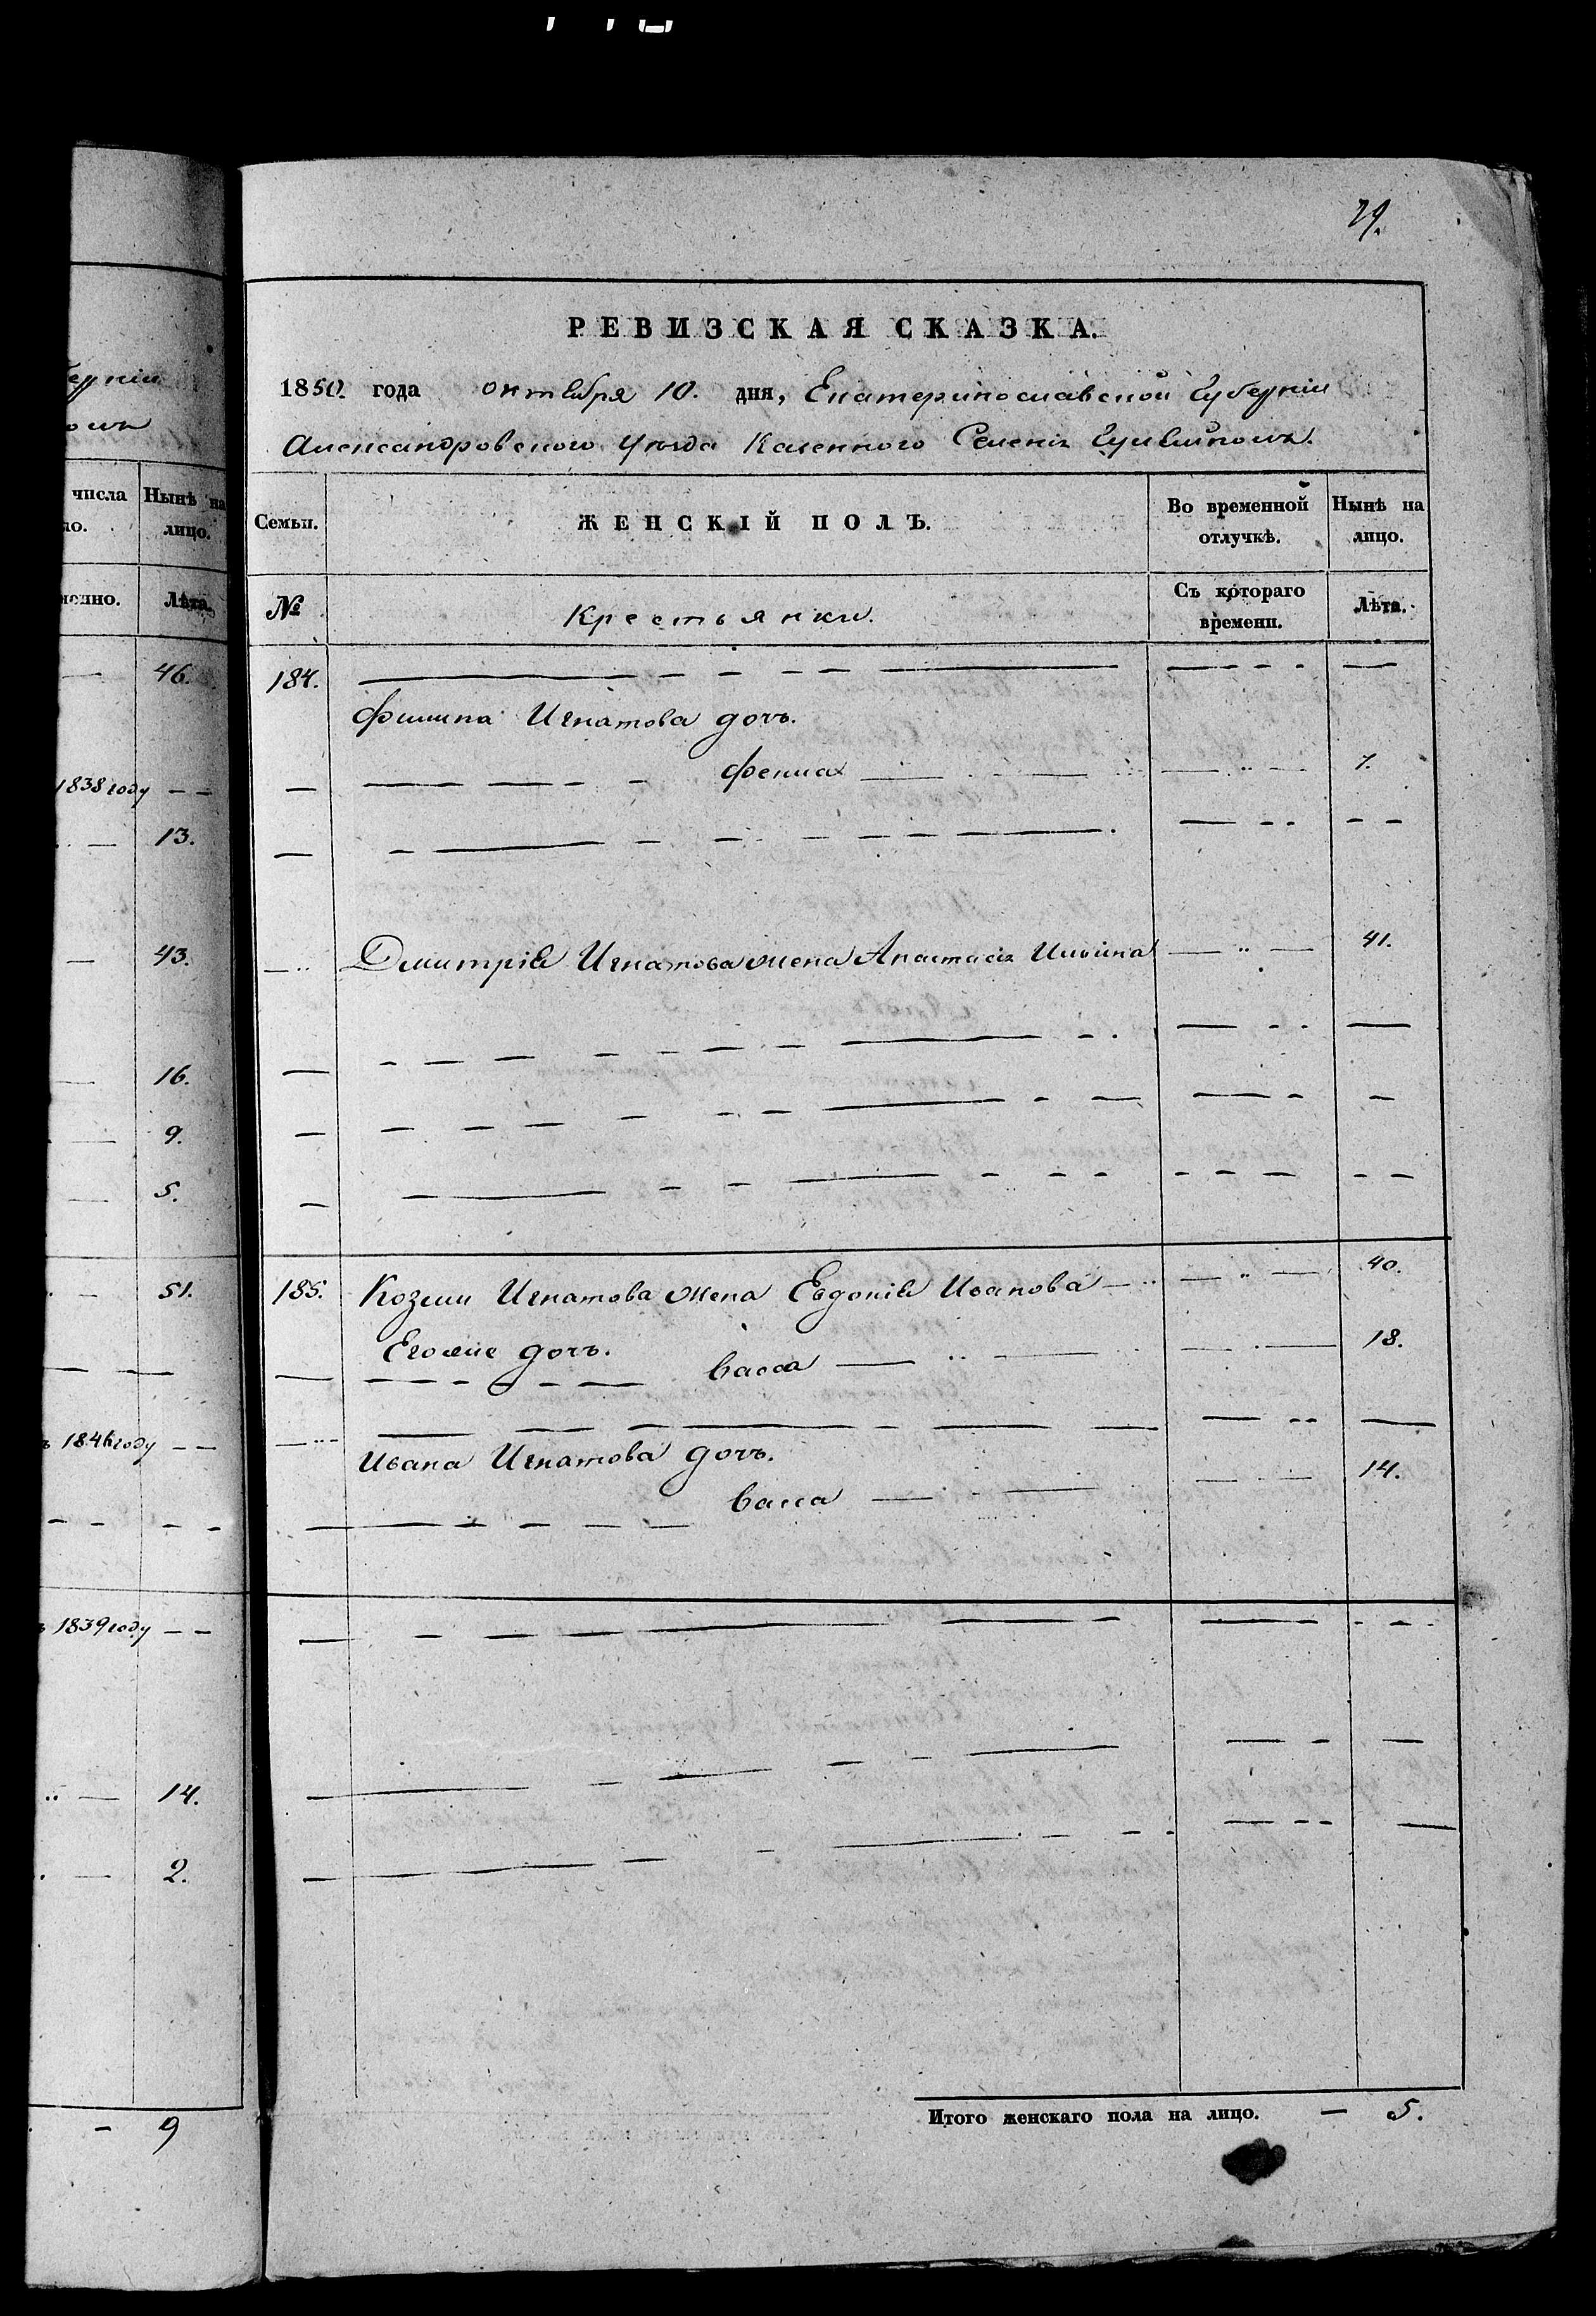 29.
РЕВИЗСКАЯ СКАЗКА.
1850. года октября 10. дня, Екатеринославской Губерніи
Александровского Уезда Казенного Селенія Гуляйполя.
губерніи
числа
Нынѣ на лицо.
Лѣта.
46.
1838 году — —
13.
43.
16.
9.
5.
51.
1846 году — —
1839 году — —
14.
2.
— 9
Семьи.
ЖЕНСКІЙ ПОЛЪ.
Во временной отлучкѣ.
Нынѣ на лицо.
№
Крестьянки.
Съ котораго времени.
Лѣта.
184.
Игнатова дочъ.
7.
Дмитрія Игнатова жена Анастасія Ильина 41.
185. Козьмы Игнатова жена Евдокія Иванова 40.
Егоже дочъ.
Васса 18.
Ивана Игнатова дочъ.
Васса 14.
Итого женскаго пола на лицо. — 5.